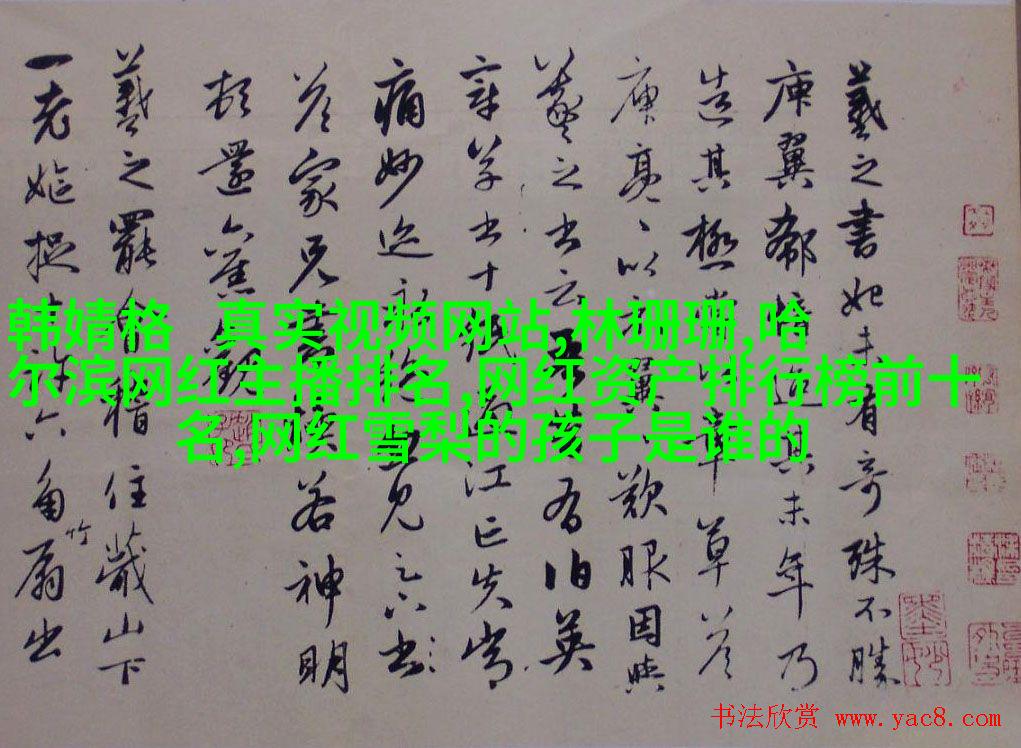 羲之書始未有奇殊不勝
庾翼郗愔迨其末年乃
造其極嘗以章草答
庾亮〻以示翼歎服因與
羲之書云吾昔有伯英
章草書十紙過江亡失常
痛妙迹永絕忽見足下書
答家兄書煥若神明
頓還舊觀
羲之罷會稽住蕺山下
一老嫗捉十許六角竹扇出
韩婧格 真实视频网站,林珊珊,哈
尔滨网红主播排名,网红资产排行榜前十
名,网红雪梨的孩子是谁的
书法欣赏 www.yac8.com